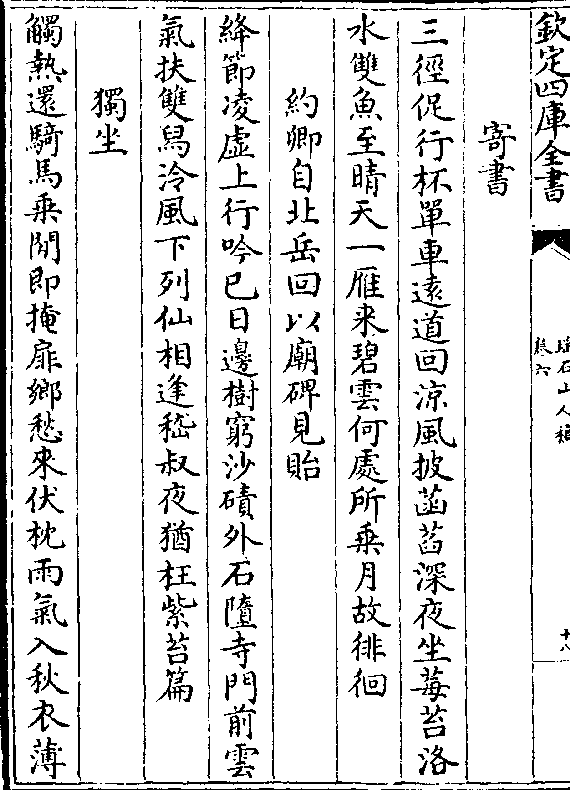 欽定四庫全書
瑤石山人稿
卷六
十八
寄書
三徑促行杯單車遠道回涼風披菡萏深夜坐莓苔洛
水雙魚至晴天一雁来碧雲何處所乗月故徘徊
約卿自北岳回以廟碑見貽
絳節凌虛上行吟巳日邊樹窮沙磧外石墮寺門前雲
氣扶雙舄泠風下列仙相逢嵇叔夜猶枉紫苔篇
獨坐
觸熱還騎馬乗閒即掩扉鄉愁來伏枕雨氣入秋衣薄